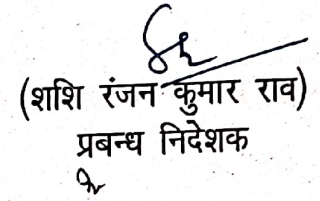 (शशि रंजन कुमार राव)
प्रबन्ध निदेशक